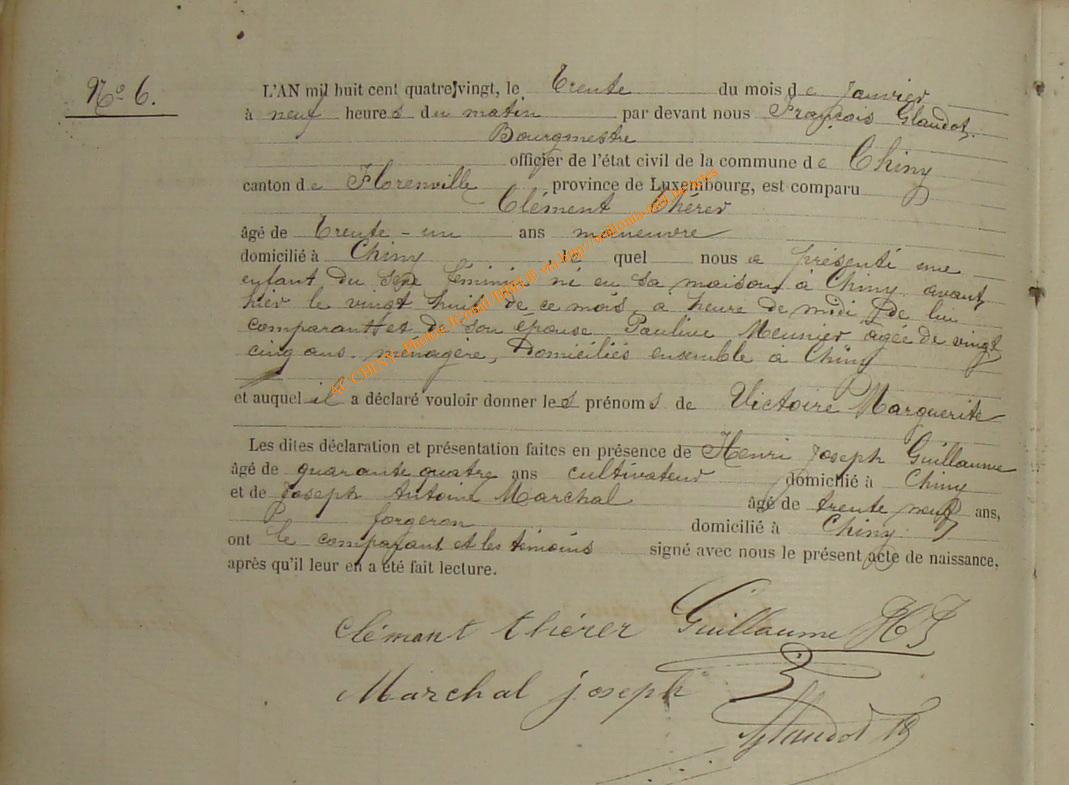 N° 6.
L'AN mil huit cent quatre-vingt, le Trente du mois de Janvier
à neuf heures du matin par devant nous François Glaudot
Bourgmestre
officier de l'état civil de la commune de Chiny
canton de Florenville province de Luxembourg, est comparu
Clément Thérer
âgé de Trente-un ans manœuvre
domicilié à Chiny, le quel nous a présenté une
enfant du sexe féminin né en sa maison à Chiny avant
hier le vingt huit de ce mois a heure de midi de lui
comparant et de son épouse Pauline Meunier âgée de vingt
cinq ans ménagère, Domiciliés ensemble à Chiny
et auquel il a déclaré vouloir donner les prénoms de Victoire Marguerite
Les dites déclaration et présentation faites en présence de Henri Joseph Guillaume
âgé de quarante quatre ans cultivateur domicilié à Chiny
et de Joseph Antoine Marchal âgé de trente neuf ans,
forgeron domicilié à Chiny
ont le comparant et les témoins signé avec nous le présent acte de naissance,
après qu'il leur en a été fait lecture.
Clémant thiérer Guillaume HJ
Marchal joseph
Glaudot